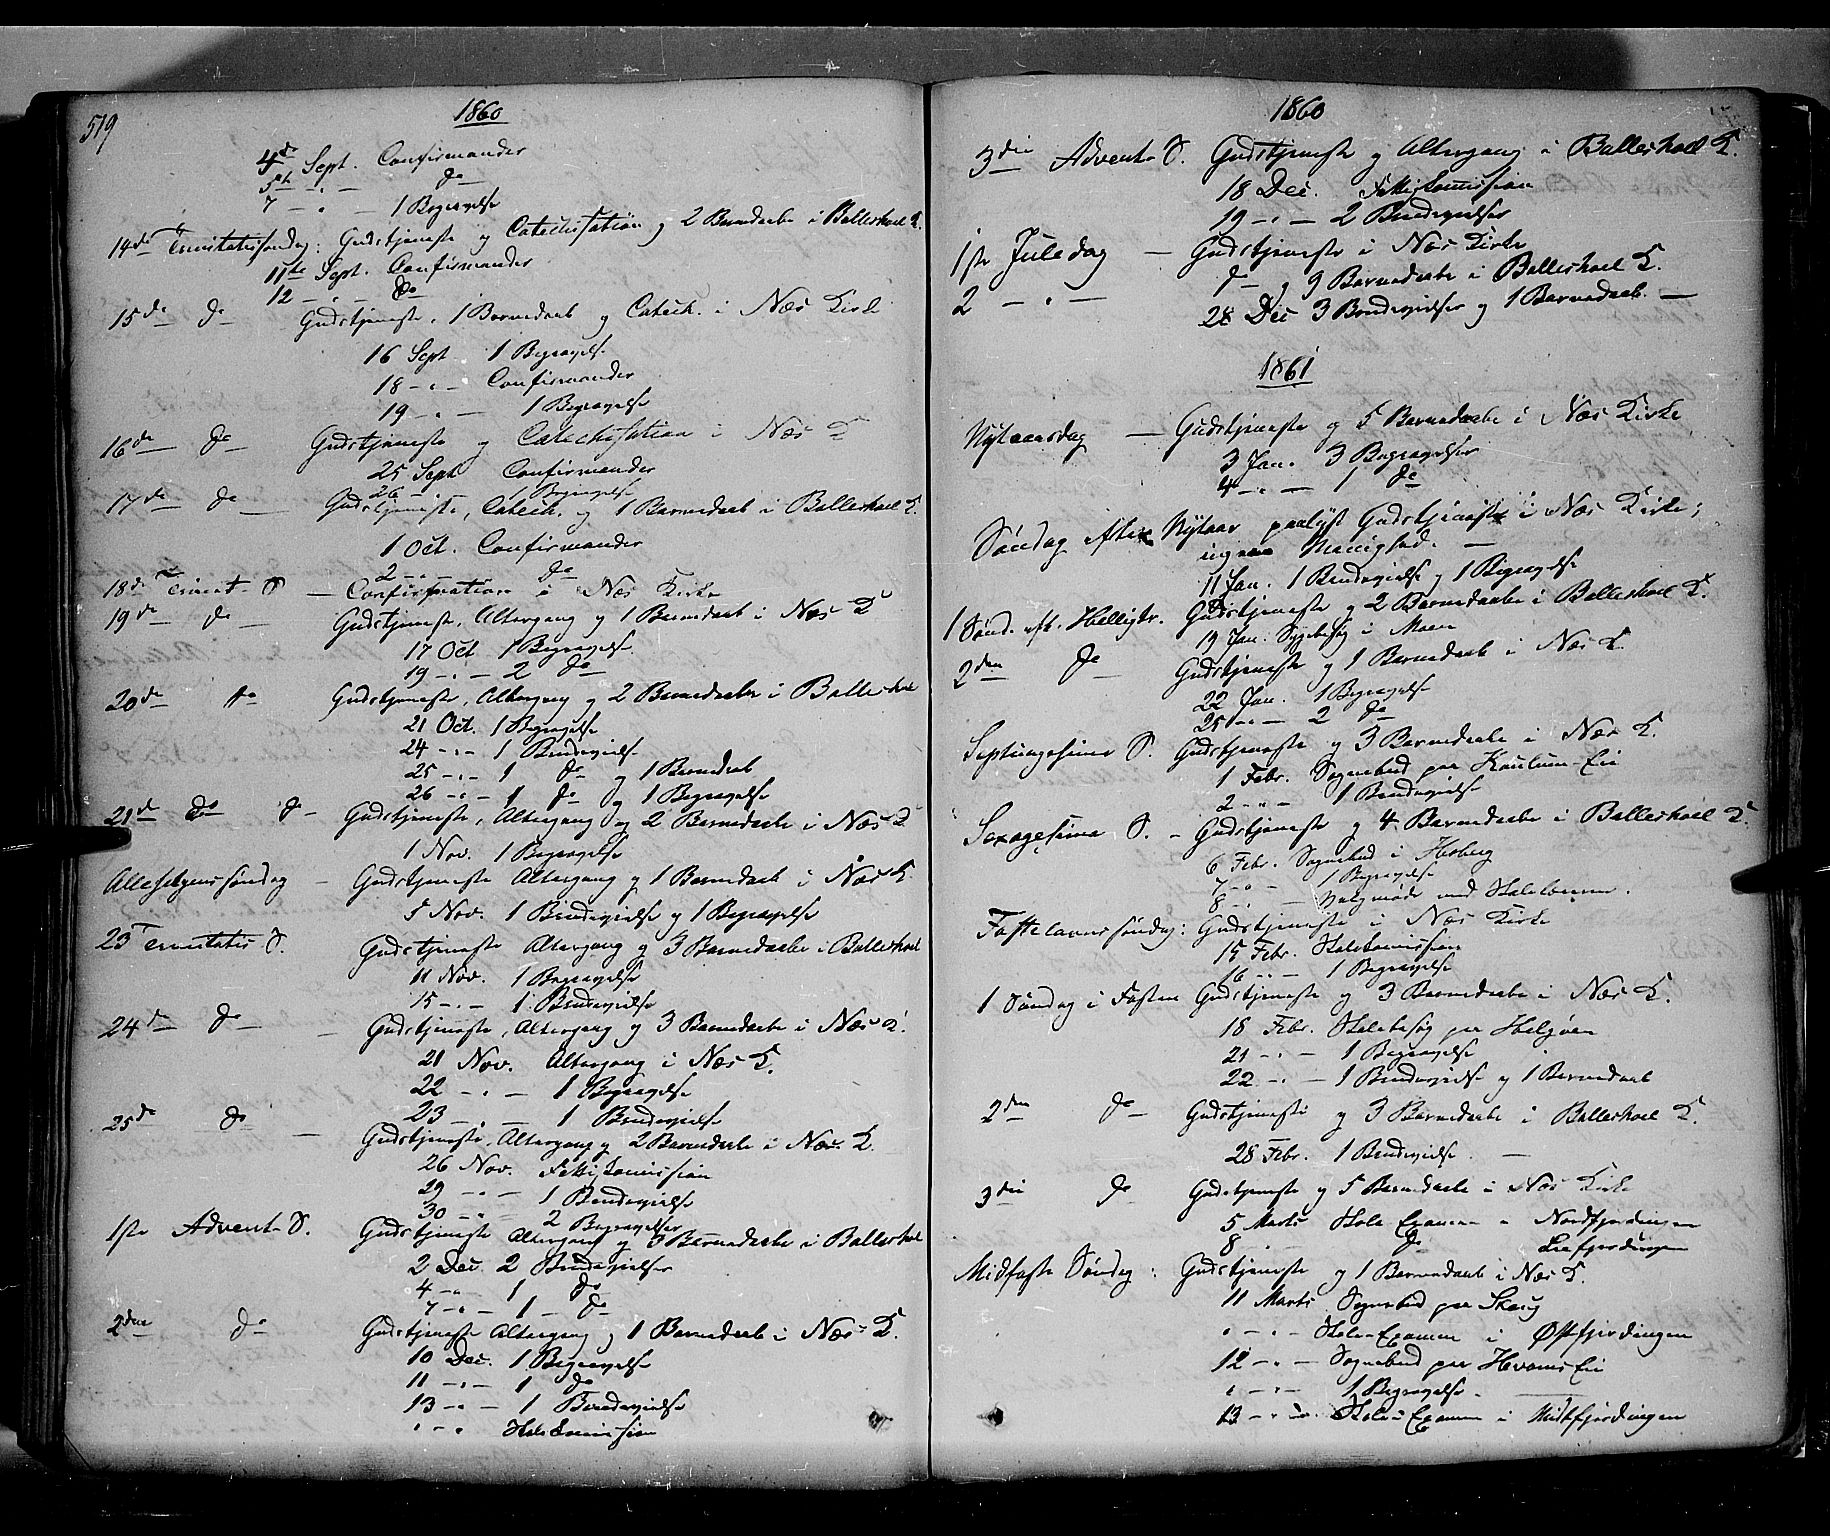 519
1860
4de Sept. Confirmander
5te - " - do
7 - " - 1 Begravelse
14de Trinitatissøndag: Gudstjeneste og Catechisation og 2 Barnedaabe i Balleshoel K.
11te Sept. Confirmander
12 - " - do
15de do Gudstjeneste, 1 Barnedaab og Catech. i Næs Kirke
16 Sept 1 Begravelse
18 - " - Confirmander
19 - " - 1 Begravelse
16de do Gudstjeneste og Catechisation i Næs K
25 Sept Confirmander
26 - " - 1 Begravelse
17de do Gudstjeneste, Catech. og 1 Barnedaab i Balleshoel K.
1 Oct. Confirmander
2 - " - do
18de Trinit. S. - Confirmation i Næs Kirke
19de do - Gudstjeneste, Altergang og 1 Barnedaab i Næs K
17 Oct 1 Begravelse
19 - " - 2 do
20de do Gudstjeneste, Altergang og 2 Barnedaabe i Balleshoel
21 Oct. 1 Begravelse
24 - " - 1 Brudevielse
25 - " - 1 do og 1 Barnedaab
26 - " - 1 do og 1 Begravelse
21de do do - Gudstjeneste, Altergang og 2 Barnedaabe i Næs K
1 Nov. 1 Begravelse
Allehelgenssøndag - Gudstjeneste Altergang og 1 Barnedaab i Næs K.
5 Nov. 1 Brudevielse og 1 Begravelse
23 Trinitatis S. Gudstjeneste Altergang og 3 Barnedaabe i Balleshoel
11 Nov. 1 Begravelse
15 - " - 1 Brudevielse
24de do - Gudstjeneste, Altergang og 3 Barnedaabe i Næs K.
21 Nov. Altergang i Næs K.
22 - " - 1 Begravelse
23 - " - 1 Brudevielse
25de do - Gudstjeneste, Altergang og 2 Barnedaabe i Næs K.
26 Nov. Fattigkomission
29 - " - 1 Brudevielse
30 - " - 2 Begravelser
1ste Advent S. Gudstjeneste Altergang og 3 Barnedaabe i Balleshoel
2 Dec. 2 Brudevielser
4 - " 1 do
7 - " - 1 - do
2den do Gudstjeneste Altergang og 1 Barnedaab i Næs K.
10 Dec. 1 Begravelse
11 - " - 1 do
13 - " - 1 Brudevielse
" - " Skolekomission
1860
3die Advent S. Gudstjeneste og Altergang i Balleshoel K.
18 Dec. Fattigkomission
19 - " - 2 Brudevielser
1ste Juledag - Gudstjeneste i Næs Kirke
2 - " - do og 9 Barnedaabe i Balleshoel K.
28 Dec 3 Brudevielser og 1 Barnedaab. -
1861
Nytaarsdag - Gudstjeneste og 5 Barnedaabe i Næs Kirke
3 Jan. 3 Begravelser
4 - " - 1 do
Søndag efter Nytaar paalyst Gudstjeneste i Næs Kirke;
ingen Menighed. -
11 Jan. 1 Brudevielse og 1 Begravelse
1 Sønd. eft. Helligtr. Gudstjeneste og 2 Barnedaabe i Balleshoel K.
19 Jan. Sygebesøg i Moen
2den do - Gudstjeneste og 1 Barnedaab i Næs K.
22 Jan. 1 Begravelse
25 - " - 2 do
Septuagesima S. Gudstjeneste og 3 Barnedaabe i Næs K.
1 Febr. Sognebud paa Kaulum-Eie
2 - " - 1 Brudevielse
Sexagesima S. - Gudstjeneste og 4 Barnedaabe i Balleshoel K.
6 Febr. Sognebud i Hoberg
7 - " - 1 Begravelse
8 - " - Valgmøde ved
Fastelavnssøndag: Gudstjeneste i Næs Kirke
15 Febr. Skolekomission
16 - " - 1 Begravelse
1 Søndag i Fasten Gudstjeneste og 3 Barnedaabe i Næs K.
18 Febr. Skolebesøg paa Helgøen
21 - " - 1 Begravelse
22 - " - 1 Brudevielse og 1 Barnedaab
2den do - Gudstjeneste og 3 Barnedaabe i Balleshoel K.
28 Febr. 1 Brudevielse. -
3die do Gudstjeneste og 5 Barnedaabe i Næs Kirke
5 Marts Skole Examen i Nordfjerdingen
8 - do
Midfaste Søndag: Gudstjeneste og 1 Barnedaab i Næs K.
11 Marts Sognebud paa Skaug
" - " - Skole-Examen i Østfjerdingen
12 - " - Sognebud paa Hvams Eie
" - " - 1 Begravelse.
13 - " - Skole-Examen i Midtfjerdingen